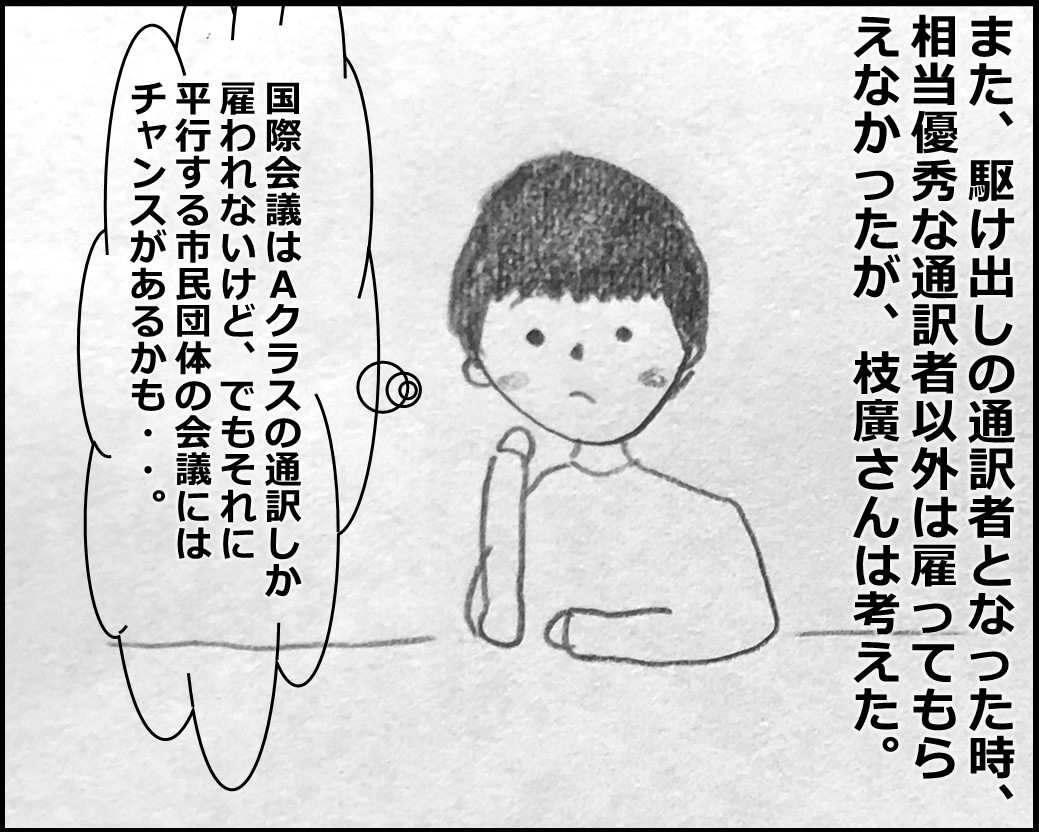 また、駆け出しの通訳者となった時、
相当優秀な通訳者以外は雇ってもら
えなかったが、枝廣さんは考えた。
国際会議はAクラスの通訳しか
雇われないけど、でもそれに
平行する市民団体の会議には
チャンスがあるかも・・。